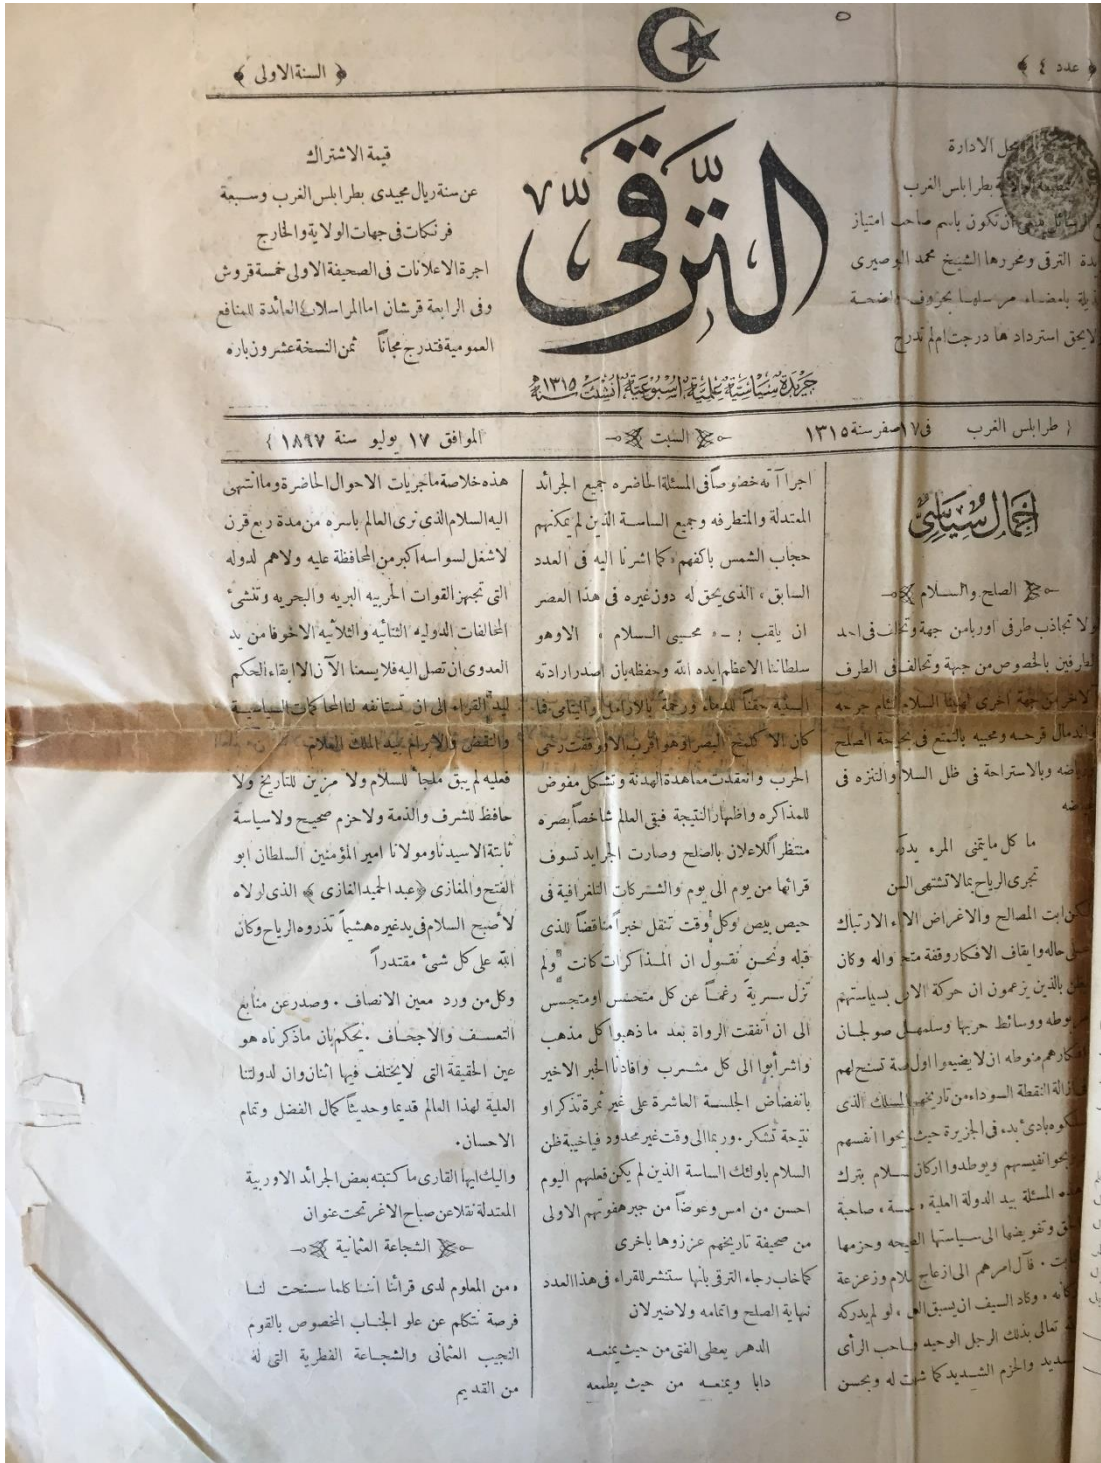 عدد ٤
السنة الاولى
محل الادارة
بطرابلس الغرب
ان تكون باسم صاحب امتياز
الترقى ومحررها الشيخ محمد البوصيرى
بامضاء مرسلها بحروف واضحة
لايحق استردادها درجت ام لم تدرج
الترقى
جريدة سياسية علمية اسبوعية انشئت سنة ١٣١٥
قيمة الاشتراك
عن سنة ريال مجيدى بطرابلس الغرب وسبعة
فرنكات فى جهات الولاية والخارج
اجرة الاعلانات فى الصحيفة الاولى خمسة قروش
وفى الرابعة قرشان اما المراسلات العائدة للمنافع
العمومية فتدرج مجاناً ثمن النسخة عشرون باره
طرابلس الغرب فى ١٧ صفر سنة ١٣١٥
السبت
الموافق ١٧ يوليو سنة ١٨٩٧
اجمال سياسى
الصلح والسلام
ولا تجاذب طرفى اوربا من جهة وتخلف فى احد
الطرفين بالخصوص من جهة وتحالف فى الطرف
الاخر من جهة اخرى لهنئا السلام بلثام جرحه
واندمال قرحه ومحبيه بالتمتع فى بحبحة الصلح
ورياضه وبالاستراحة فى ظل السلا والتنزه فى
ما كل ما يتمنى المرء يدركه
تجرى الرياح بما لا تشتهى السفن
لكن ابت المصالح والاغراض الا الارتباك
على حاله وايقاف الافكار وقفة واله وكان
بالذين يزعمون ان حركة بسياستهم
مربوطه ووسائط حربها وسلمها صولجان
افكارهم منوطه ان لا يضيعوا اول تسنح لهم
ازالة النقطة السوداء من تاريخهم المسلك الذى
سلكوه بادئ بدء فى الجزيرة حيث يحوا انفسهم
نفيسهم ويوطدوا اركان السلام بترك
هذه المسئلة بيد الدولة العلية صاحبة
وتفويضها الى سياستها وحزمها
فآل امرهم الى ازعاج السلام وزعزعة
وكاد السيف ان يسبق لو لم يدركه
تعالى بذلك الرجل الوحيد صاحب الرأى
السديد والحزم الشديد كما شهدت له وبحسن
اجراآته خصوصاً فى المسئلة الحاضره جميع الجرائد
المعتدلة والمتطرفه وجميع الساسة الذين لم يمكنهم
حجاب الشمس باكفهم، كما اشرنا اليه فى العدد
السابق، الذى يحق له دون غيره فى هذا العصر
ان يلقب بـ محيى السلام، الا وهو
سلطاننا الاعظم ايده الله وحفظه بان اصدر ارادته
السنيه حقناً للدماء ورحمة بالارامل واليتامى فما
كان الا كلمح البصر او هو اقرب الا ووقفت رحى
الحرب وانعقدت معاهدة الهدنة وتشكل مفوض
للمذاكره واظهار النتيجة فبقى العالم شاخصاً بصره
منتظراً للاعلان بالصلح وصارت الجرايد تسوف
قرائها من يوم الى يوم والشركات التلغرافية فى
حيص بيص وكل وقت تنقل خبراً مناقضاً للذى
قبله ونحن نقول ان المذاكرات كانت ولم
تزل سرية رغماً عن كل متحسس او متجسس
الى ان اتفقت الرواة بعد ما ذهبوا كل مذهب
واشرأبوا الى كل مشرب وافادنا الخبر الاخير
بانفضاض الجلسة العاشرة على غير ثمرة تذكر او
نتيجة تشكر. وربما الى وقت غير محدود فيا خيبة ظن
السلام باولئك الساسة الذين لم يكن فعلهم اليوم
احسن من امس وعوضاً من جبر هفوتهم الاولى
من صحيفة تاريخهم عززوها باخرى
كما خاب رجاء الترقى بانها ستنشر للقراء فى هذا العدد
نهاية الصلح واتمامه ولا ضير لان
الدهر يعطى الفتى من حيث يمنعه
دابا ويمنعه من حيث يطمعه
هذه خلاصة ماجريات الاحوال الحاضرة وما انتهى
اليه السلام الذى نرى العالم باسره من مدة ربع قرن
لا شغل لسواسه اكبر من المحافظة عليه ولا هم لدوله
التى تجهز القوات الحربيه البريه والبحريه وتنشئ
المخالفات الدوليه الثنائيه والثلاثيه الا خوفا من يد
العدوى ان تصل اليه فلا يسعنا الآن الا ابقاء الحكم
ليد القراء الى ان تستانفه لنا المحاكمات السياسية
والنقض والابرام بيد الملك العلام
فعليه لم يبق ملجأ للسلام ولا مزين للتاريخ ولا
حافظ للشرف والذمة ولا حزم صحيح ولا سياسة
ثابتة الا سيدنا ومولانا امير المؤمنين السلطان ابو
الفتح والمغازى ﴿عبد الحميد الغازى﴾ الذى لولاه
لأصبح السلام فى يد غيره هشيماً تذروه الرياح وكان
الله على كل شئ مقتدراً
وكل من ورد معين الانصاف. وصدر عن منابع
التعسف والاجحاف. يحكم بان ما ذكرناه هو
عين الحقيقة التى لا يختلف فيها اثنان وان لدولتنا
العلية لهذا العالم قديما وحديثاً كمال الفضل وتمام
الاحسان.
واليك ايها القارى ما كتبته بعض الجرائد الاوربية
المعتدلة نقلا عن صباح الاغر تحت عنوان
الشجاعة العثمانية
من المعلوم لدى قرائنا أننا كلما سنحت لنا
فرصة نتكلم عن علو الجناب المخصوص بالقوم
النجيب العثمانى والشجاعة الفطرية التى له
من القديم